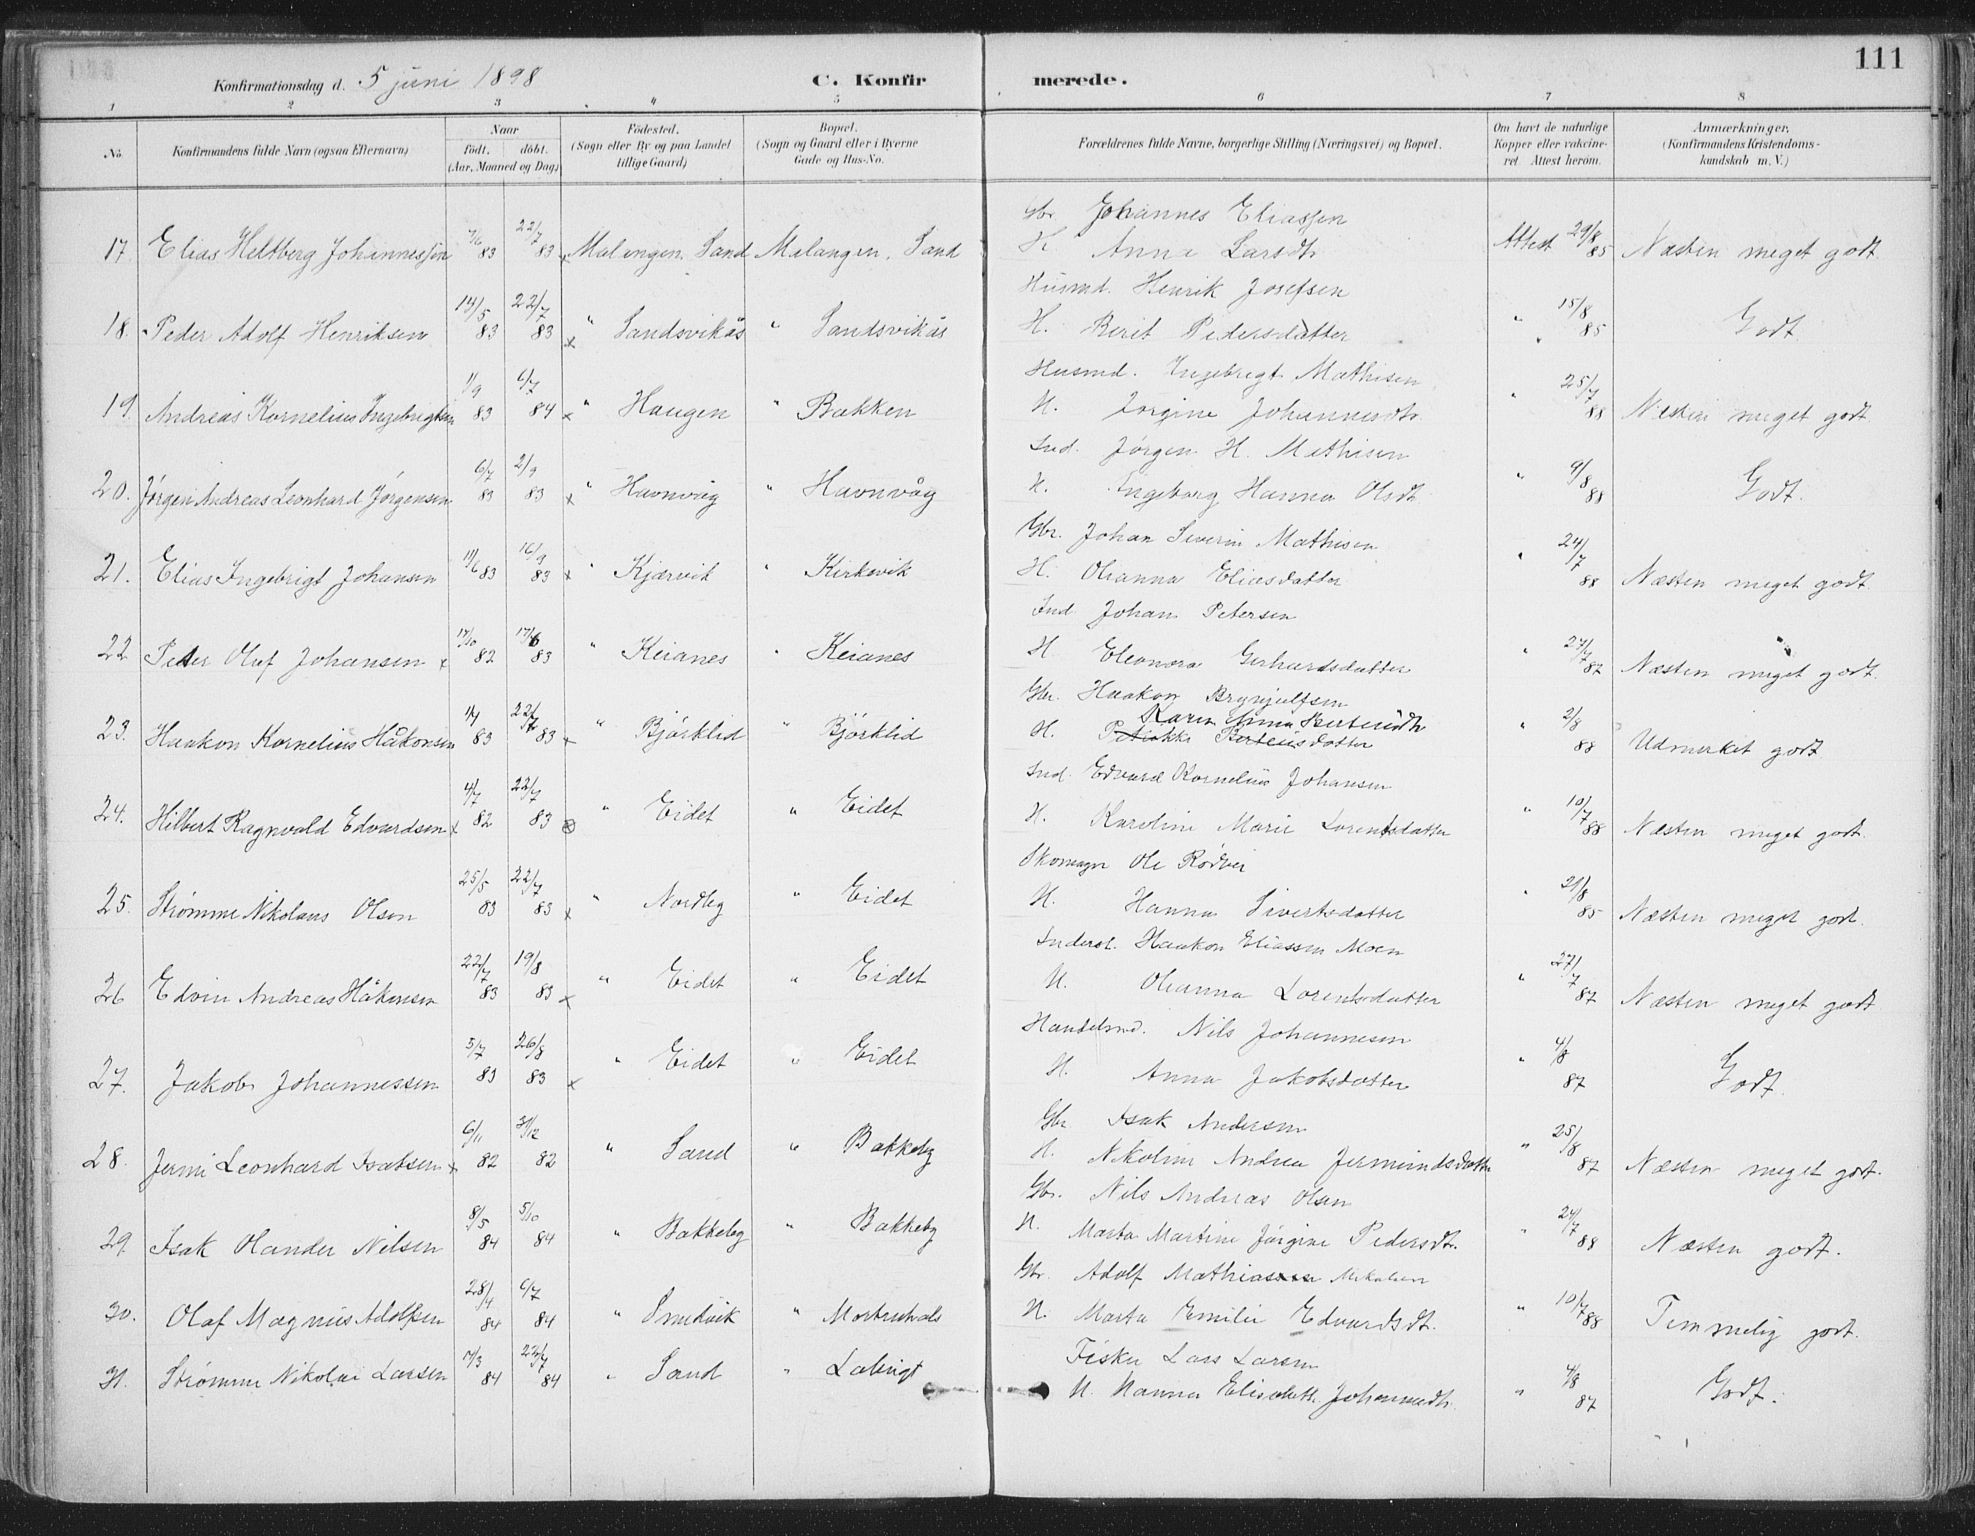 111
Konfirmationsdag d. 5 juni 1898 C. Konfir merede.
1 2 3 4 5 6 7 8
No Konfirmandens fulde Navn (ogsaa Efternavn) Naar födt. döbt. (Aar, Maaned og Dag) Födested. (Sogn eller By og paa Landet tillige Gaard) Bopæl. (Sogn og Gaard eller i Byerne Gade og Hus-No. Forældrenes fulde Navne, borgerlige Stilling (Næringsvei) og Bopæl. Om havt de naturlige Kopper eller vakcineret. Attest herom. Anmærkninger. (Konfirmandens Kristendomskundskab m. V.)
Gbr. Johannes Eliassen
17. Elias Heltberg Johannessen 7/6 83 22/7 83 x Malangen, Sand Malangen, Sand H. Anna Larsdtr Attest 29/8 85 Næsten meget godt.
Husmd. Henrik Josefsen
18. Peder Adolf Henriksen 14/5 83 22/7 83 x " Sandsvikås " Sandsvikås H. Berit Pedersdatter " 15/8 85 Godt.
Husmd. Ingebrigt Mathisen
19. Andreas Kornelius Ingebrigtsen 1/9 83 6/7 84 x " Haugen " Bakken H. Jorgine Johannesdtr. " 25/7 88 Næsten meget godt
Ind. Jørgen H. Mathisen
20. Jørgen Andreas Leonhard Jørgensen 6/7 83 2/9 83 x " Havnvåg " Havnvåg H. Ingeborg Hanna Olsdtr " 9/8 88 Godt.
Gbr. Johan Siverin Mathisen
21. Elias Ingebrigt Johansen 11/6 83 16/9 83 x " Kjærvik " Kirkevik H. Olianna Eliasdatter " 24/7 88 Næsten meget godt.
Ind. Johan Petersen
22. Peder Oluf Johansen x 17/10 82 17/6 83 " Keianes " Keianes H. Eleonora Gerhardsdatter " 27/7 87 Næsten meget godt.
Gbr. Haakon Brynjulfsen
Karen Anna Berteusdtr
23. Haakon Kornelius Håkonsen 1/1 83 22/7 83 x " Bjørklid " Bjørklid H. Berteusdatter " 2/8 88 Udmerket godt
Ind. Edvard Kornelius Johansen
24. Hilbert Ragnvald Edvardsen x 4/7 82 22/7 83 " Eidet " Eidet H. Karoline Marie Lorentsdatter " 10/7 88 Næsten meget godt.
Skomager Ole Rødvei
25. Strømme Nikolaus Olsen 25/5 83 22/7 83 x " Nordby " Eidet H. Hanna Sivertsdatter " 21/8 85 Næsten meget godt.
Inderst. Haakon Eliassen Moen
26 Edvin Andreas Håkensen 22/7 83 19/8 83 x " Eidet " Eidet H. Olianna Lorentsdatter " 27/7 87 Næsten meget godt
Handelsmd. Nils Johannesen
27. Jakob Johannessen 5/7 83 26/8 83 x " Eidet " Eidet H. Anna Jakobsdatter " 4/8 87 Godt.
Gbr Isak Andersen
28. Jermi Leonhard Isaksen x 6/11 82 31/12 82 " Sand " Bakkeby H. Nikoline Andrea Jermundsdatter " 25/8 87 Næsten meget godt.
Gbr. Nils Andreas Olsen
29. Isak Olander Nilsen 8/5 84 5/10 84 " Bakkeby " Bakkeby H. Marta Martine Jørgine Pedersdtr. " 24/7 88 Næsten godt.
Gbr. Adolf Mathiassen Mikalsen
30. Olaf Magnus Adolfsen 28/4 84 6/7 84 " Smedvik " Mortenhals H. Marta Emilie Edvardsdt. " 10/7 88 Temmelig godt.
Fisker Lars Larsen
31. Strømme Nikolai Larsen 17/3 84 22/7 84 " Sand " H. Hanna Elisabeth Johannesdtr. " 4/8 87 Godt.